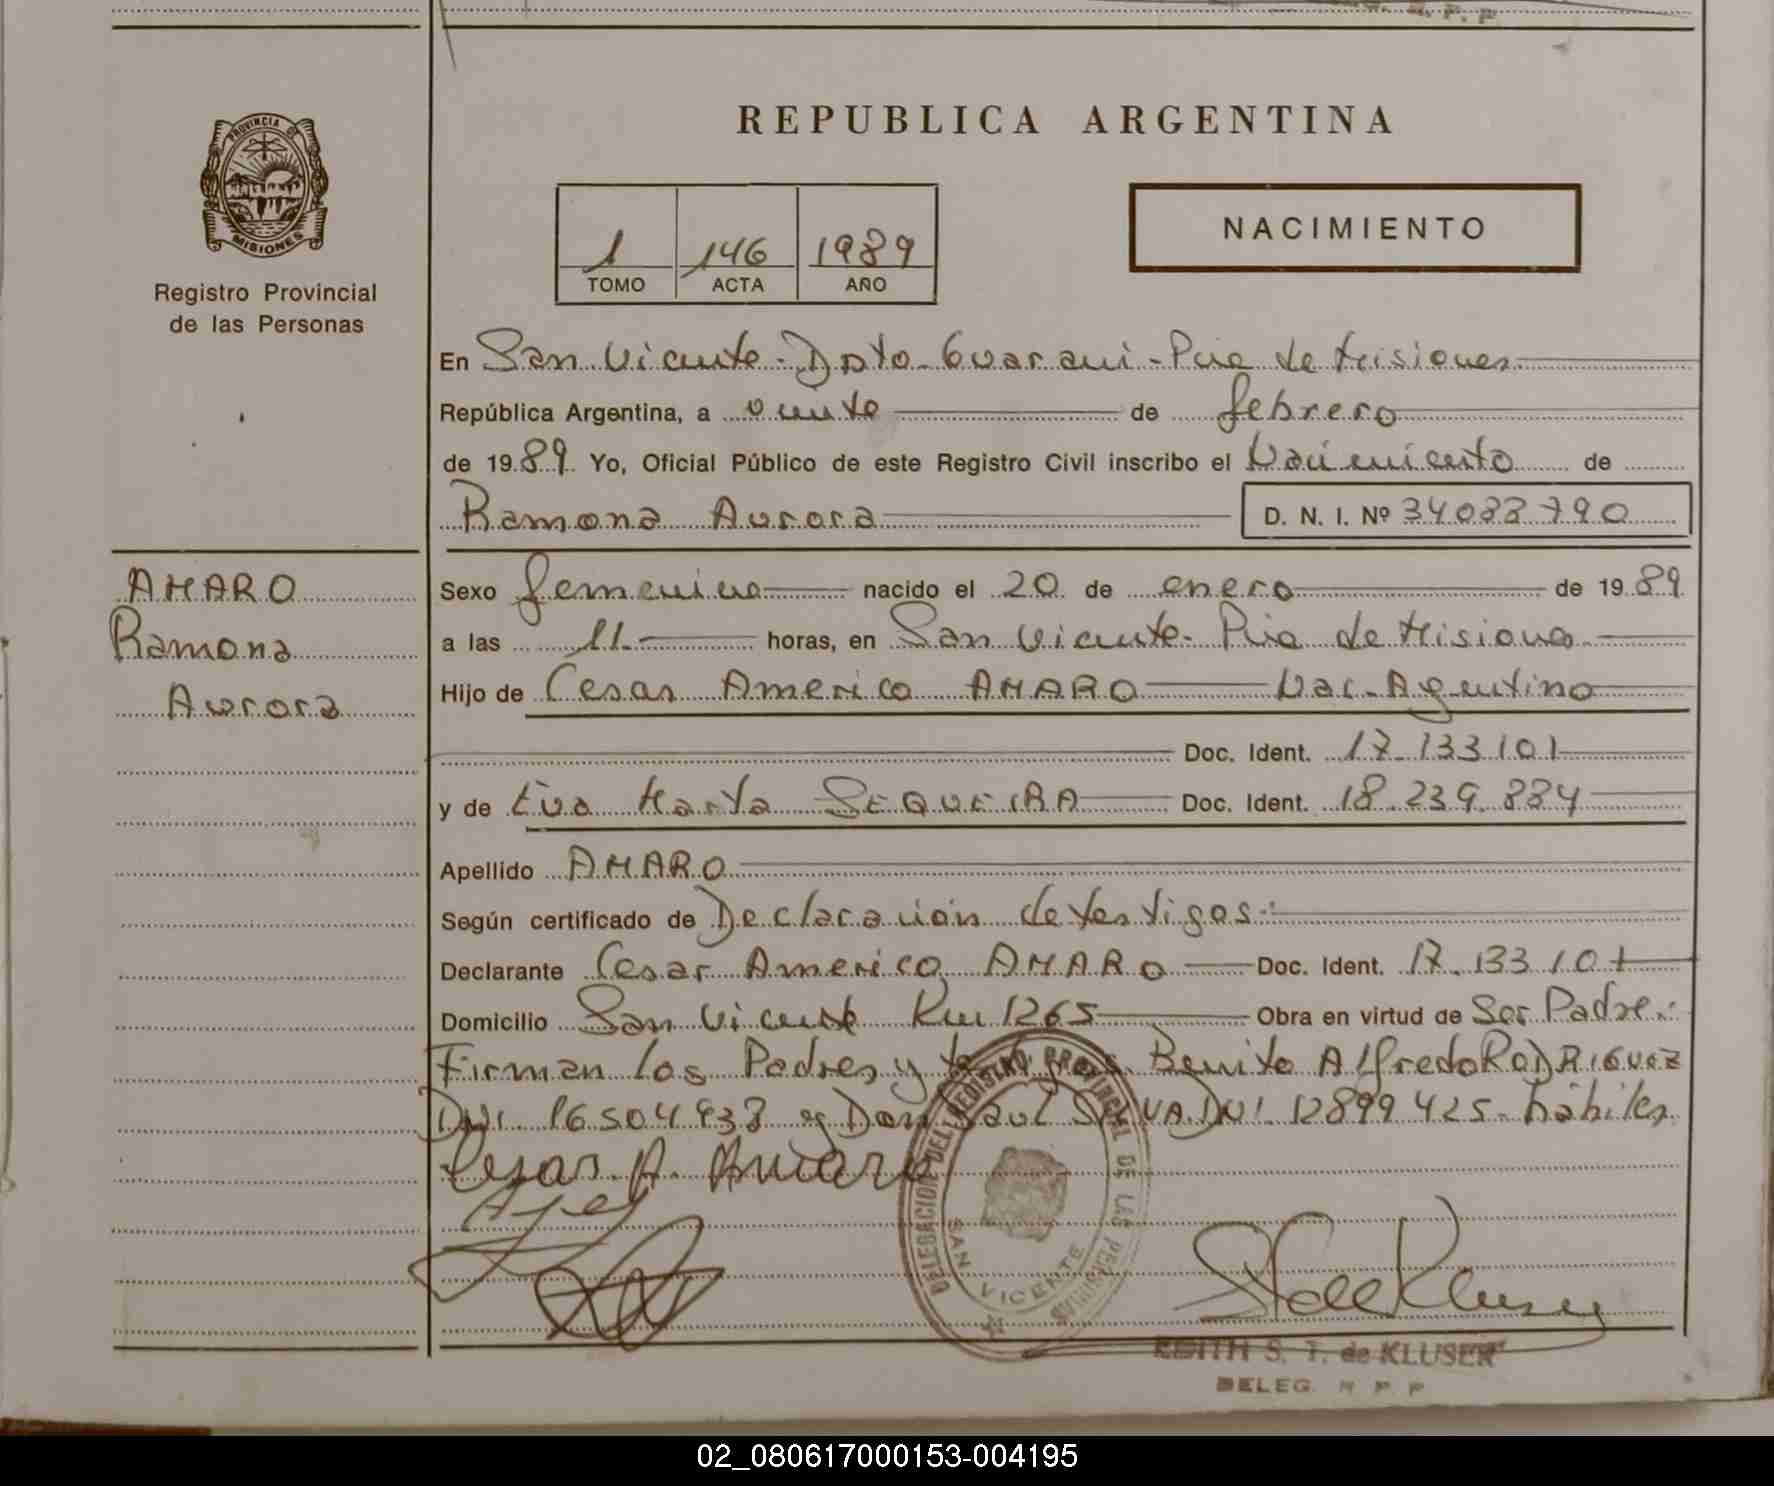 REPUBLICA ARGENTINA
PROVINCIA DE MISIONES
Registro Provincial
de las Personas
1 146 1989
TOMO ACTA AÑO
NACIMIENTO
En San Vicente - Dpto. Guarani - Pcia de Misiones
República Argentina, a veinte de febrero
de 1989 Yo, Oficial Público de este Registro Civil inscribo el Nacimiento de
Ramona Aurora D. N. I. Nº 34088790
AMARO
Ramona
Aurora
Sexo femenino nacido el 20 de enero de 1989
a las 11 horas, en San Vicente - Pcia de Misiones
Hijo de Cesar Americo AMARO Nac. Agentino
Doc. Ident. 17.133101
y de Eva Marta SEQUEIRA Doc. Ident. 18.239.884
Apellido AMARO
Según certificado de Declaración de testigos.
Declarante Cesar Americo AMARO Doc. Ident. 17.133101
Domicilio San Vicente Km 1265 Obra en virtud de Ser Padre.
Firman los Padres y testigos Benito Alfredo RODRIGUEZ
DNI 16504938 y Don Raul SILVA DNI 12899425 - hábiles
Cesar A. Amaro
DELEGACION DEL REGISTRO PROVINCIAL DE LAS PERSONAS
SAN VICENTE
EDITH S. T. de KLUSER
DELEG. R P P
02_080617000153-004195